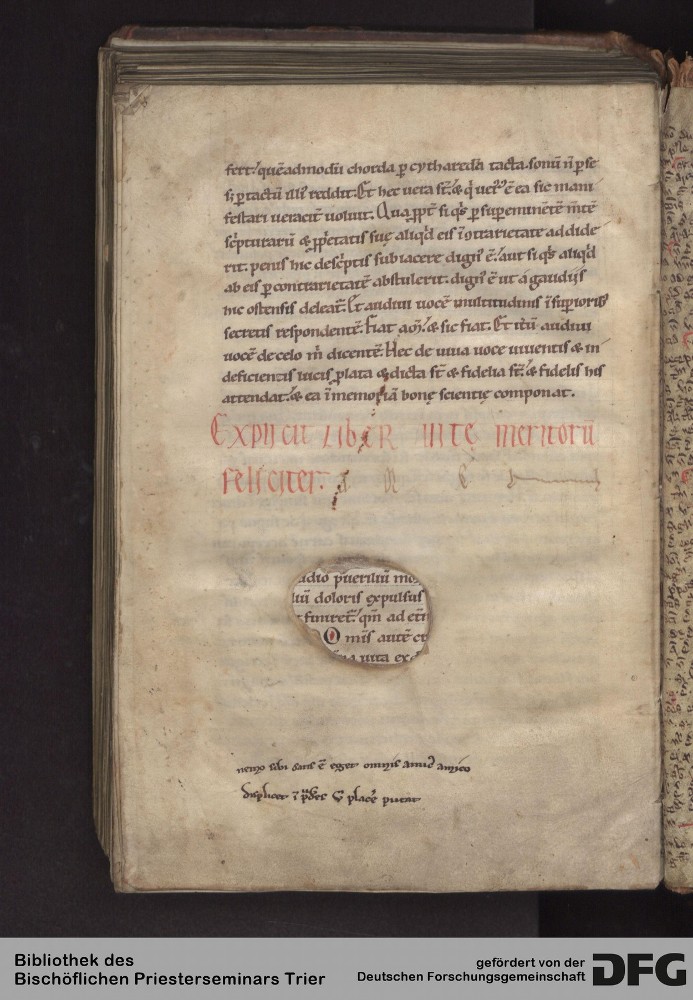 fert. quēadmodū chorda p cytharedā tacta. sonū n̄ p se
s; p tactū illi᷒ reddit. Et hec uera st̄. & q̇ uer᷒ ē ea sic mani
festari ueracit̄ uoluit. Qua ꝓpt̄ si qͥs p supeminētē m̄tē
sc̄pturarū & ꝓp̄etatis suę aliqͥd eis ī 9trarietate addide
rit. penis hic desc̄ptis subiacere dign᷒ ē. aut si qͥs aliqͥd
ab eis p contrarietatē abstulerit. dign᷒ ē ut a gaudijs
hic ostensis deleat᷑. Et audiui uocē multitudinis ī supioribꝰ
secretis respondentē. Fiat am̄. & sic fiat. Et it̄ū audiui
uocē de celo m̄ dicentē. Hec de uiua uoce uiuentis & in
deficientis lucis plata & dicta st̄ & fidelia st̄. & fidelis his
attendat. & ea ī memoriā bonę scientię componat.
Explicit liber uite meritorū
feliciter.
adio pueriliū mo
liū doloris expulsus
finiret᷑. qm̄ ad et̄n
Omīs autē cr
uita ex
nemo sibi satis ē eget omnis amic᷒ amico
displicet ī
placē putat
Bibliothek des
Bischöflichen Priesterseminars Trier
gefördert von der
Deutschen Forschungsgemeinschaft
DFG